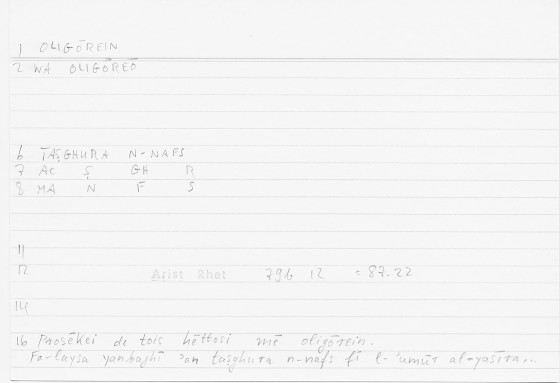 1 OLIGŌREIN
2 WA OLIGŌREŌ
6 TAṢGHURA N-NAFS
7 AC Ṣ GH R
8 MA N F S
11
12 Arist Rhet 796 12 = 87.22
14
16 Prosēkei de tois hēttosi mē oligōrein.
Fa-laysa yanbaghī 'an taṣghura n-nafs fī l-'umūr al-yasīra...